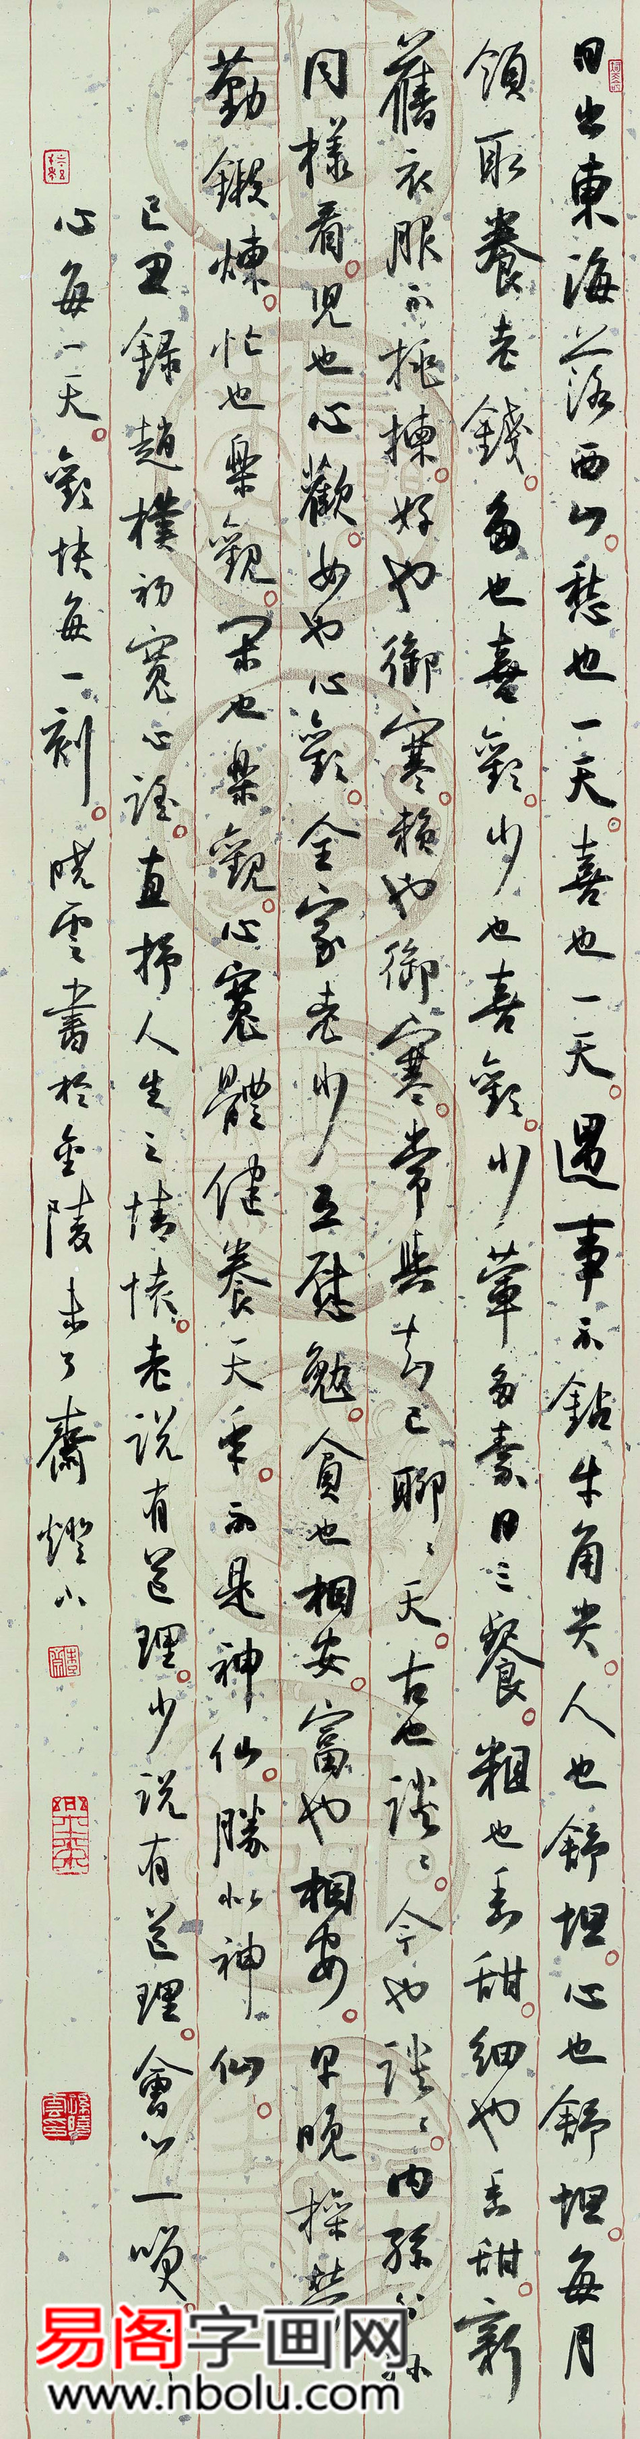 日出東海落西山。愁也一天。喜也一天。遇事不鉆牛角尖。人也舒坦。心也舒坦。每月
領取養老錢。多也喜歡。少也喜歡。少葷多素日三餐。粗也香甜。細也香甜。新
舊衣服不挑揀。好也御寒。賴也御寒。常與知己聊聊天。古也談談。今也談談。内孫外孫
同樣看。兒也心歡。女也心歡。全家老少互慰勉。貧也相安。富也相安。早晚操勞
勤鍛煉。忙也樂觀。閑也樂觀。心寬體健養天年。不是神仙。勝似神仙。
己丑錄趙樸初寬心謠。直抒人生之情懷。老說有道理。少說有道理。會心一笑。
心每一天。歡快每一刻。曉雲書於金陵未了齋燈下
易阁字画网
www.nbolu.com